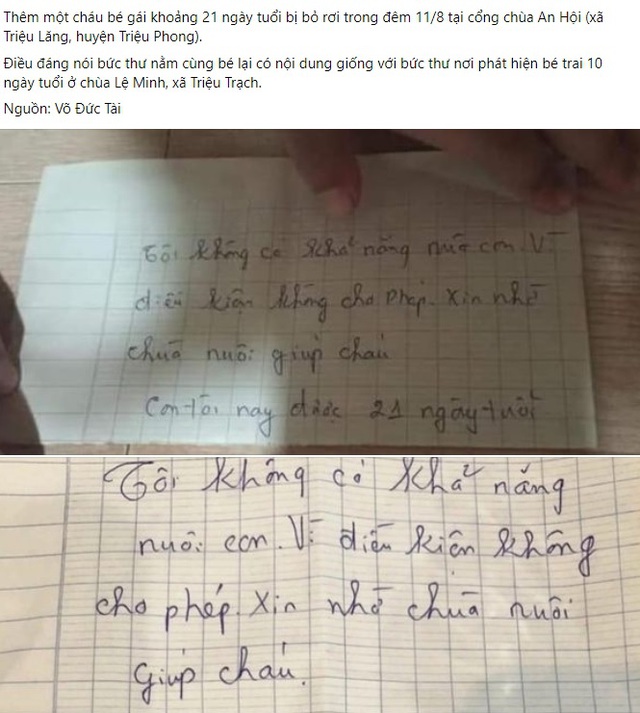 Thêm một cháu bé gái khoảng 21 ngày tuổi bị bỏ rơi trong đêm 11/8 tại cổng chùa An Hội (xã
Triệu Lăng, huyện Triệu Phong).
Điều đáng nói bức thư nằm cùng bé lại có nội dung giống với bức thư nơi phát hiện bé trai 10
ngày tuổi ở chùa Lệ Minh, xã Triệu Trạch.
Nguồn: Võ Đức Tài
Tôi không có khả năng nuô con. Vì
điều kiện không cho phép. Xin nhờ
chuà nuôi giúp cháu
Con tôi nay được 21 ngày tuổi
Tôi không có khả năng
nuôi con. Vì điều kiện không
cho phép. Xin nhờ chuà nuôi
giúp cháu.